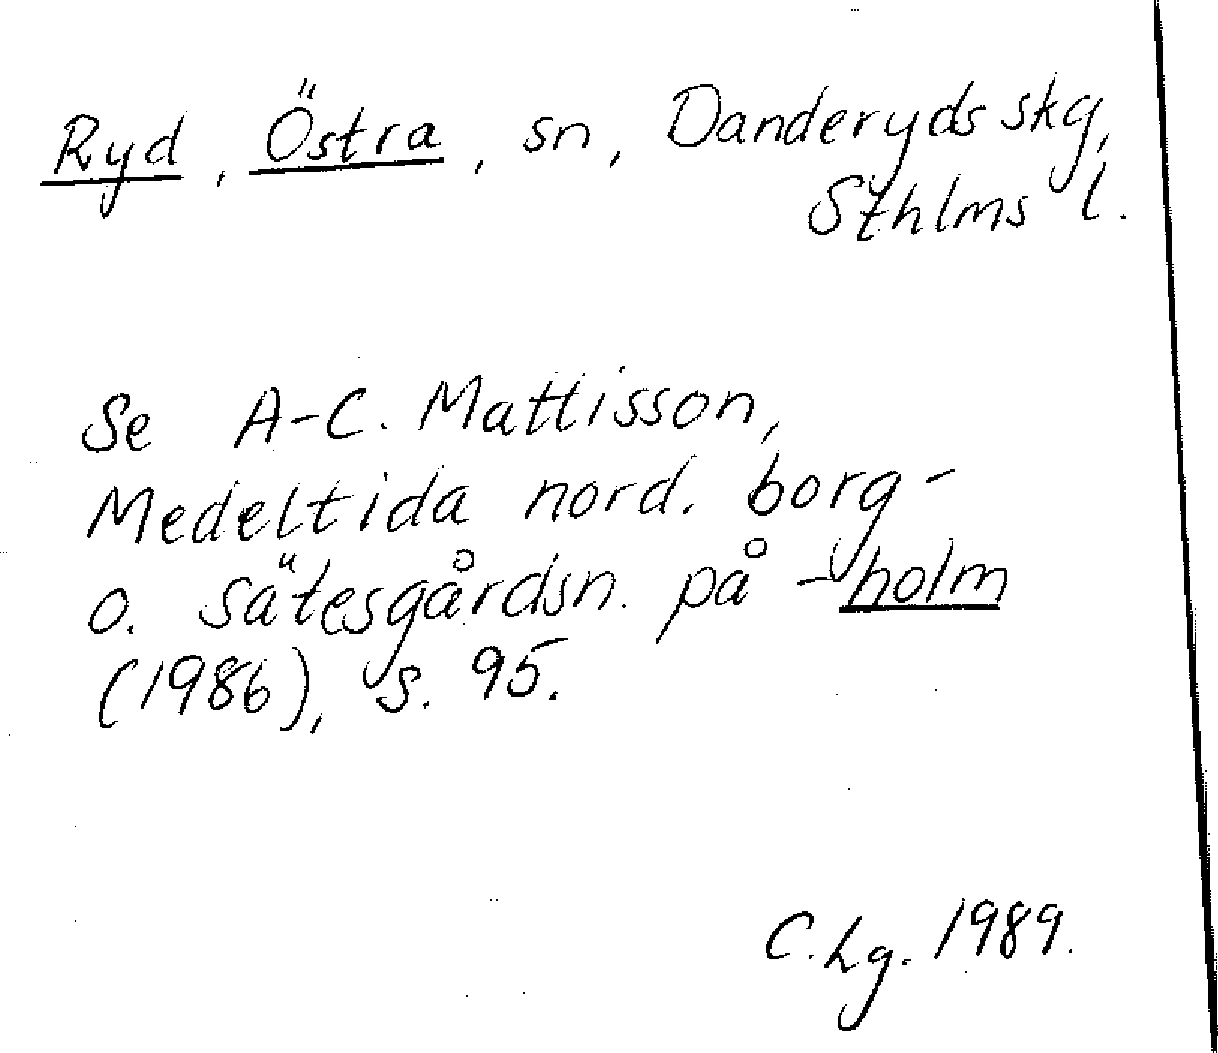 Ryd, Östra, sn, Danderyds skg,
Sthlms l.
Se A-C. Mattisson,
Medeltida nord. borg-
o. sätesgårdsn. på -holm
(1986), s. 95.
C. Lg. 1989.